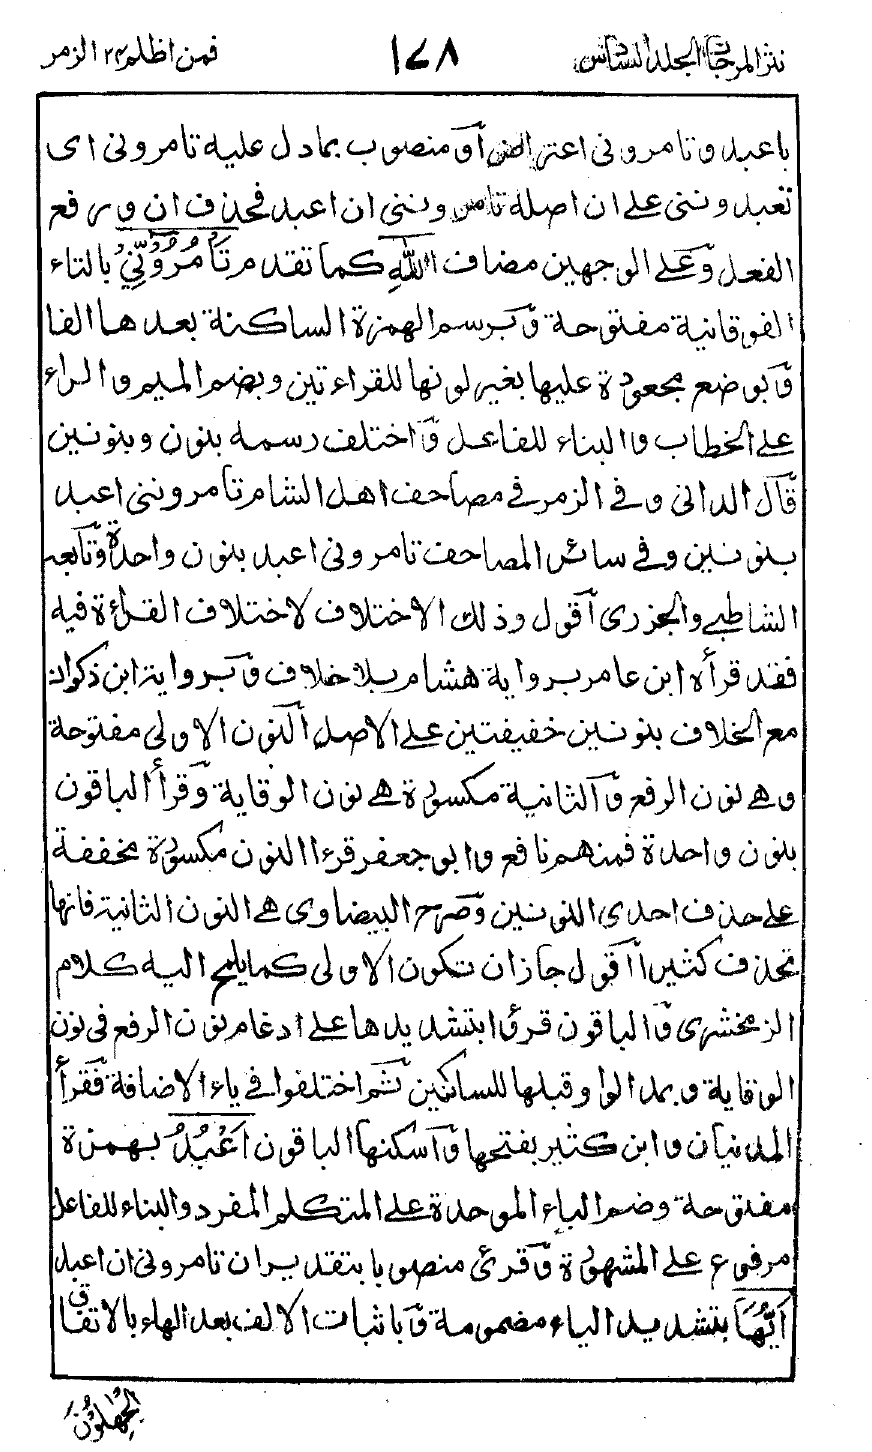 نثر المرجان الجلد السادس ١٧٨ فمن اظلم ٢٤ الزمر
باعبد وتامرونى اعتراض أو منصوب بمادل عليه تامرونى اى
تعبدوننى على ان اصله تامروننى ان اعبد فحذف ان ورفع
الفعل وعلى الوجهين مضاف اللهِ كما تقدم تَأْمُرُوٓنِّيٓ بالتاء
الفوقانية مفتوحة وبرسم الهمزة الساكنة بعدها الفا
وبوضع مجعودة عليها بغير لونها للقراءتين وبضم الميم والراء
على الخطاب والبناء للفاعل واختلف رسمه بنون وبنونين
قال الدانى وفى الزمر فى مصاحف اهل الشام تامروننى اعبد
بنونين وفى سائر المصاحف تامرونى اعبد بنون واحدة وتابعه
الشاطبى والجزرى أقول وذلك الاختلاف لاختلاف القراءة فيه
فقد قرأه ابن عامر برواية هشام بلا خلاف وبرواية ابن ذكوان
مع الخلاف بنونين خفيفتين على الاصل النون الاولى مفتوحة
وهى نون الرفع والثانية مكسورة هى نون الوقاية وقرأ الباقون
بنون واحدة فمنهم نافع وابو جعفر قرءا النون مكسورة مخففة
على حذف احدى النونين وصرح البيضاوى هى النون الثانية فانها
تحذف كثيرا أقول جاز ان تكون الاولى كما يلمح اليه كلام
الزمخشرى والباقون قرؤا بتشديدها على ادغام نون الرفع فى نون
الوقاية وبمد الواو قبلها للساكنين ثم اختلفوا فى ياء الاضافة فقرأ
المدنيان وابن كثير بفتحها وأسكنها الباقون اَعْبُدُ بهمزة
مفتوحة وضم الباء الموحدة على المتكلم المفرد والبناء للفاعل
مرفوع على المشهورة وقرئ منصوبا بتقدير ان تامرونى ان اعبد
اَيُّهَا بتشديد الياء مضمومة وباثبات الالف بعد الهاء بالاتفاق
الجٰهلونَ